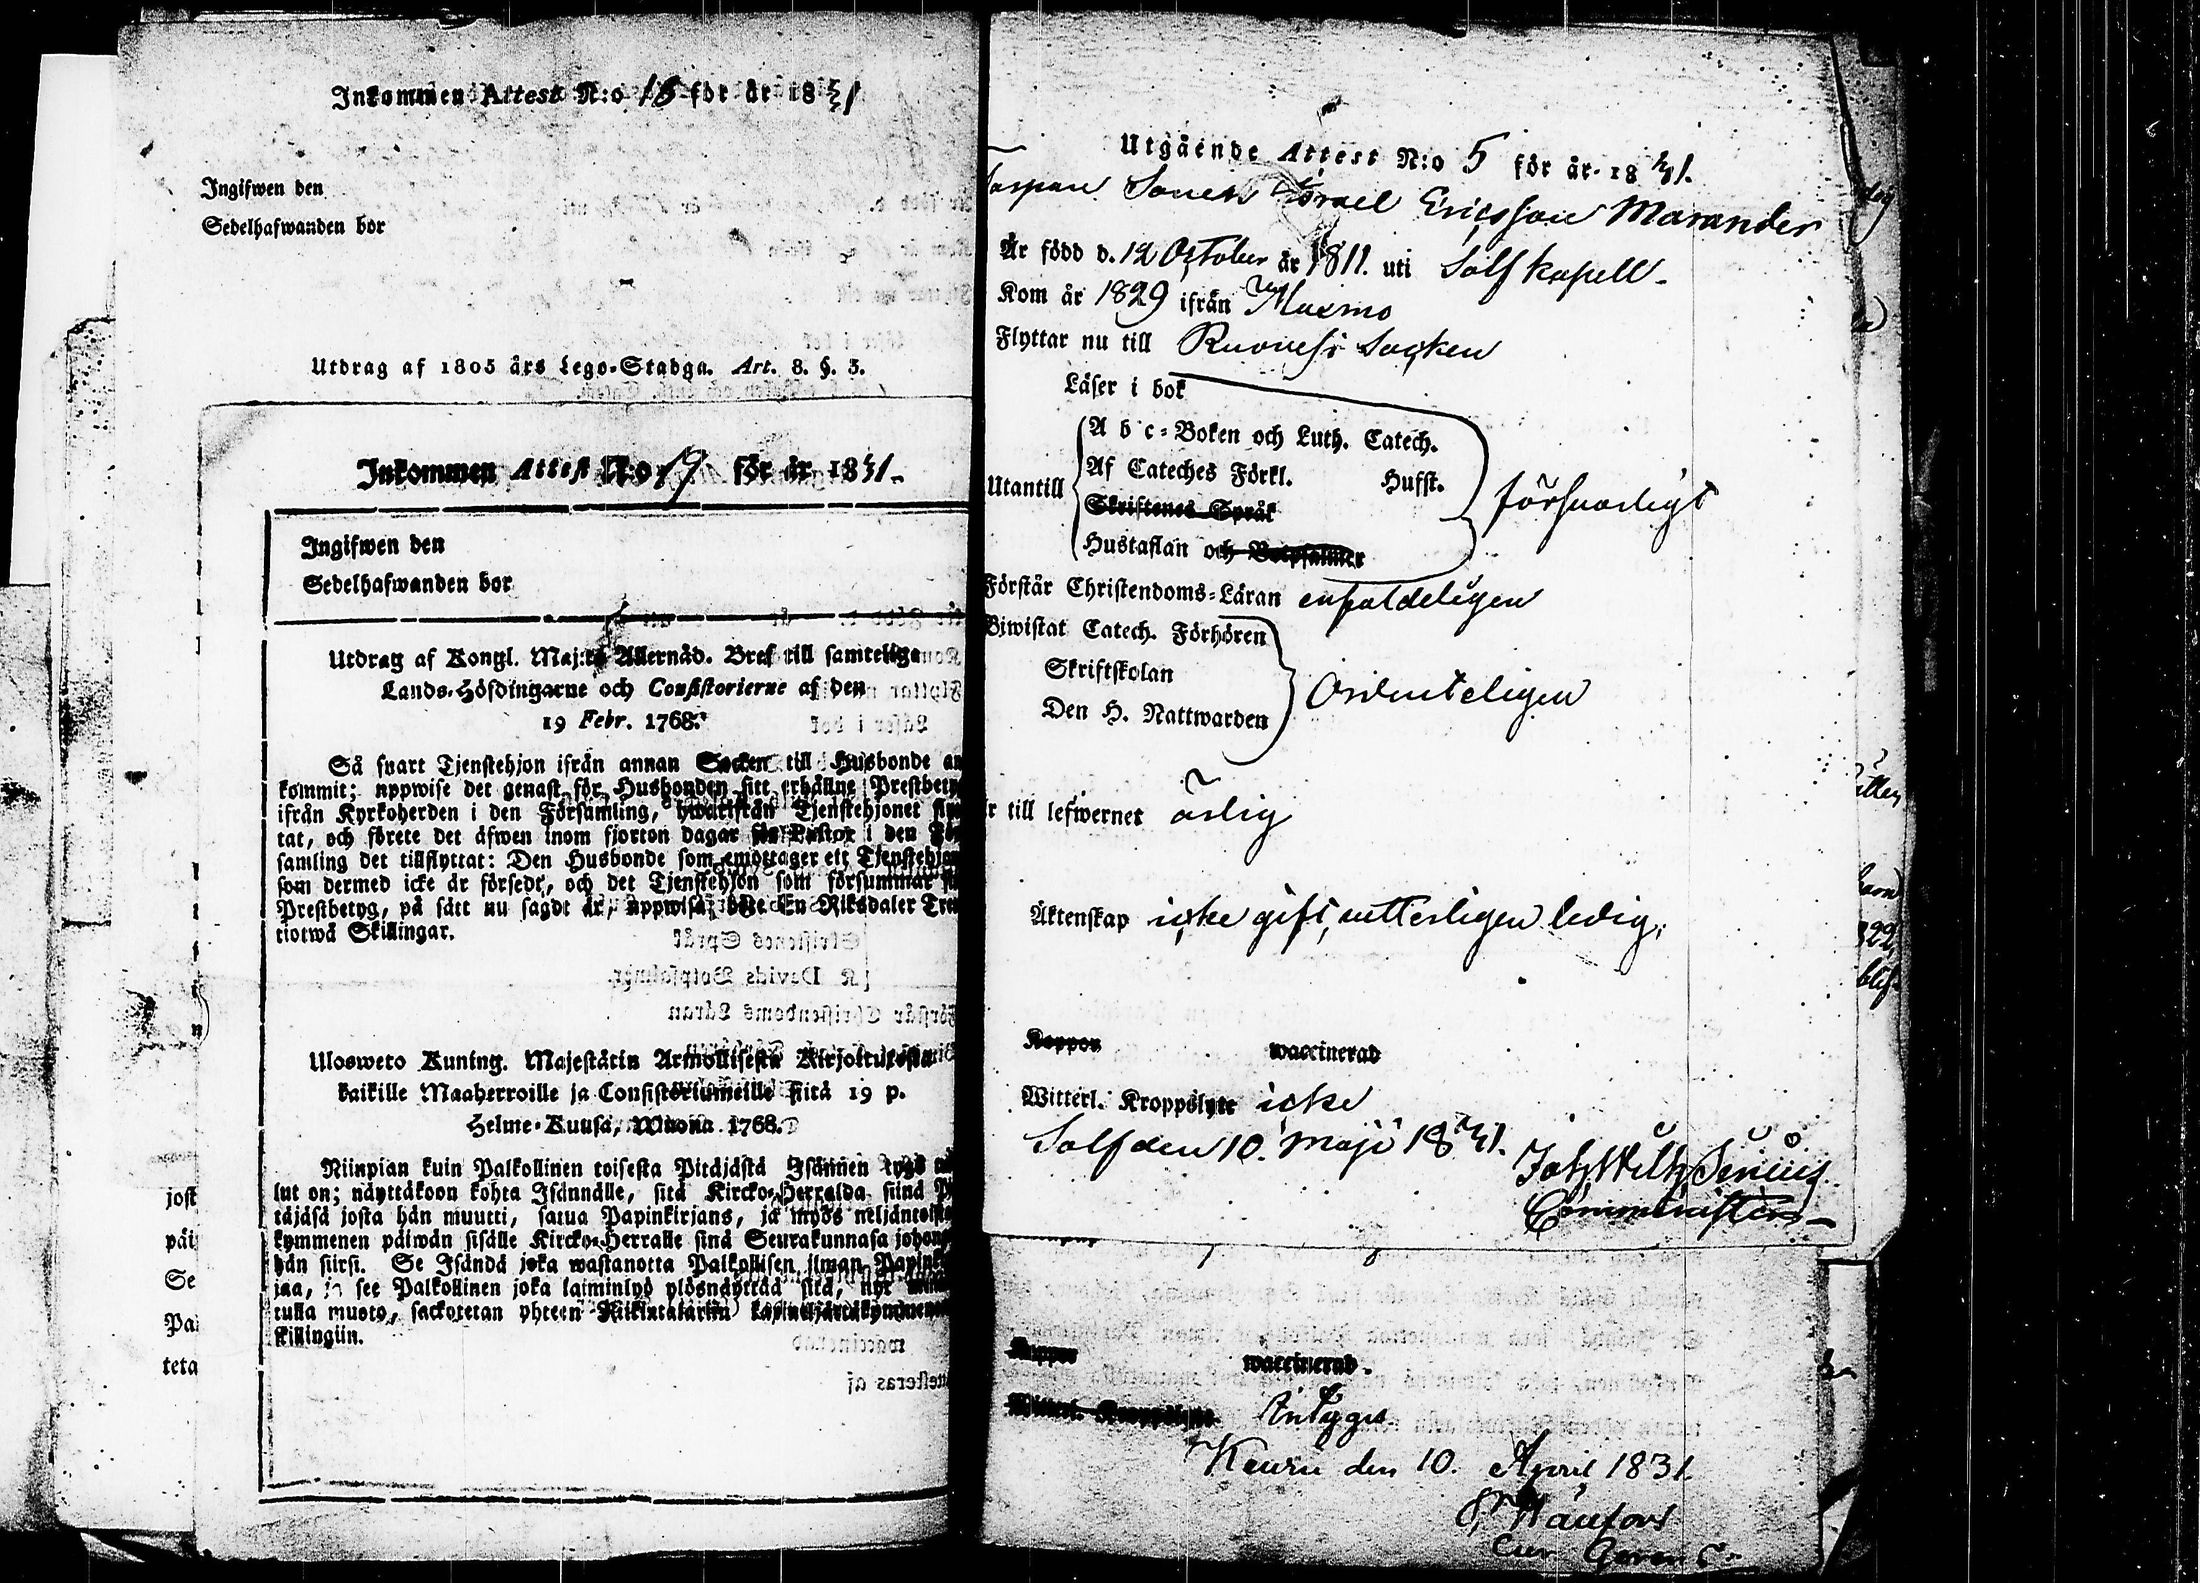 Inkommen Attest N:o 16 för år 1831
Ingifwen den
Sedelhafwanden bor
Utdrag af 1805 års Lego-Stadga. Art. 8. §. 3.
Inkommen Attest N:o 19 för år 1831.
Ingifwen den
Sedelhafwanden bor
Utdrag af Kongl. Maj:ts Allernåd. Bref till samtelige
Lands-Höfdingarne och Consistorierne af den
19 Febr. 1768.
Så snart Tjenstehjon ifrån annan Socken till Husbonde an
kommit; uppwise det genast för Husbonden sitt erhållne Prestbety
ifrån Kyrkoherden i den Församling, hwarifrån Tjenstehjonet
tat, och förete det äfwen inom fjorton dagar för Pastor i den För
samling det tillflyttat: Den Husbonde som emottager ett Tjenstehjon
som dermed icke är försedt, och det Tjenstehjon som försummar
Prestbetyg, på sätt nu sagdt är, uppwisa, böte En Riksdaler Tret
tiotwå Skillingar.
Ulosweto Kuning. Majestätin Armollisesta Kirjoituxesta
kaikille Maaherroille ja Consistoriumeille siitä 19 p.
Helme-Kuusa, Wuonna 1768.
Niinpian kuin Palkollinen toisesta Pitäjästä Isännen tygö
lut on; näyttäkoon kohta Isännälle, sitä Kircko-Herralda siinä Pi
täjäsä josta hän muutti, saatua Papinkirjans, ja myös neljäntoista
kymmenen päiwän sisälle Kircko-Herralle siinä Seurakunnasa johonga
hän siirsi. Se Isändä joka wastanotta Palkollisen ilman Papinkir
jaa, ja see Palkollinen joka laiminlyö ylösnäyttää sitä, nyt
tulla muoto, sackotetan yhteen Rikintalariin
skillingiin.
jost
päi
Se
Pal
teta
Utgående Attest N:o 5 för år 1831.
Sonen Israel Ericsson Marander
Är född d. 12 October år 1811. uti Solf kapell.
Kom år 1829 ifrån
Flyttar nu till Ruovesi Socken
Läser i bok
A b c-Boken och Luth. Catech.
Af Cateches Förkl. Hufst.
Utantill
Skriftenes Språk
försvarligt
Hustaflan och Botpsalmer
Förstår Christendoms-Läran enfaldeligen
Biwistat Catech. Förhören
Skriftskolan
Ordenteligen
Den H. Nattwarden
r till lefwernet ärlig
Äktenskap icke gift, witterligen ledig.
Koppor waccinerad
Witterl. Kroppslyte icke
Solf den 10. Maji 1831.
Comminister
Koppor waccinerad.
Witterl. Kroppslyte
Keuru den 10. April 1831.